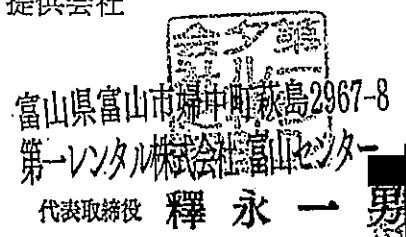 提供会社
富山県富山市婦中町萩島2967-8
第一レンタル株式会社 富山センター
代表取締役 釋 永 一 男